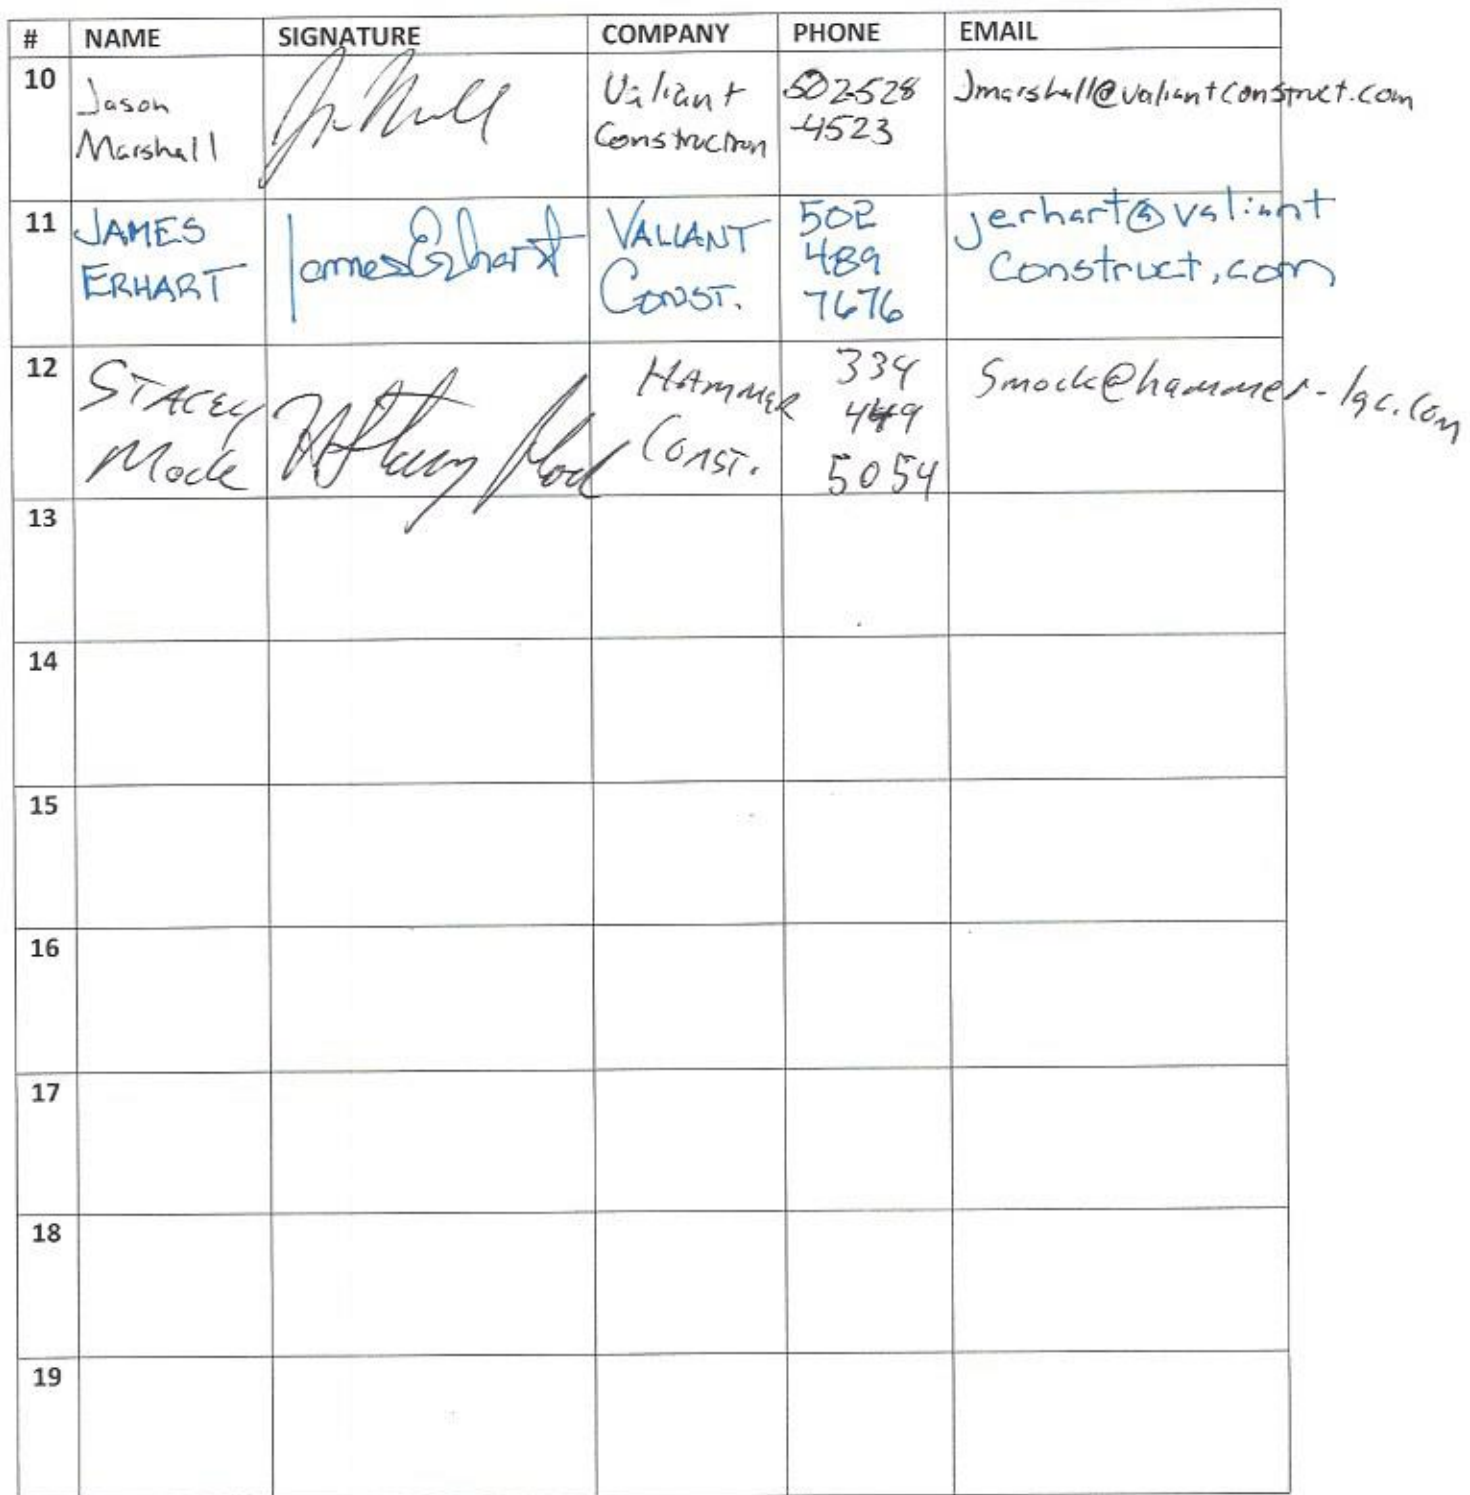 # NAME SIGNATURE COMPANY PHONE EMAIL
10
Jason
Marshall
Valiant
Construction
502-528
-4523
Jmarshall@valiantconstruct.com
11
JAMES
ERHART
James Erhart
VALIANT
CONST.
502
489
7676
jerhart@valiant
construct.com
12
STACEY
Mock
HAMMER
CONST.
334
449
5054
Smock@hammer-lgc.com
13
14
15
16
17
18
19